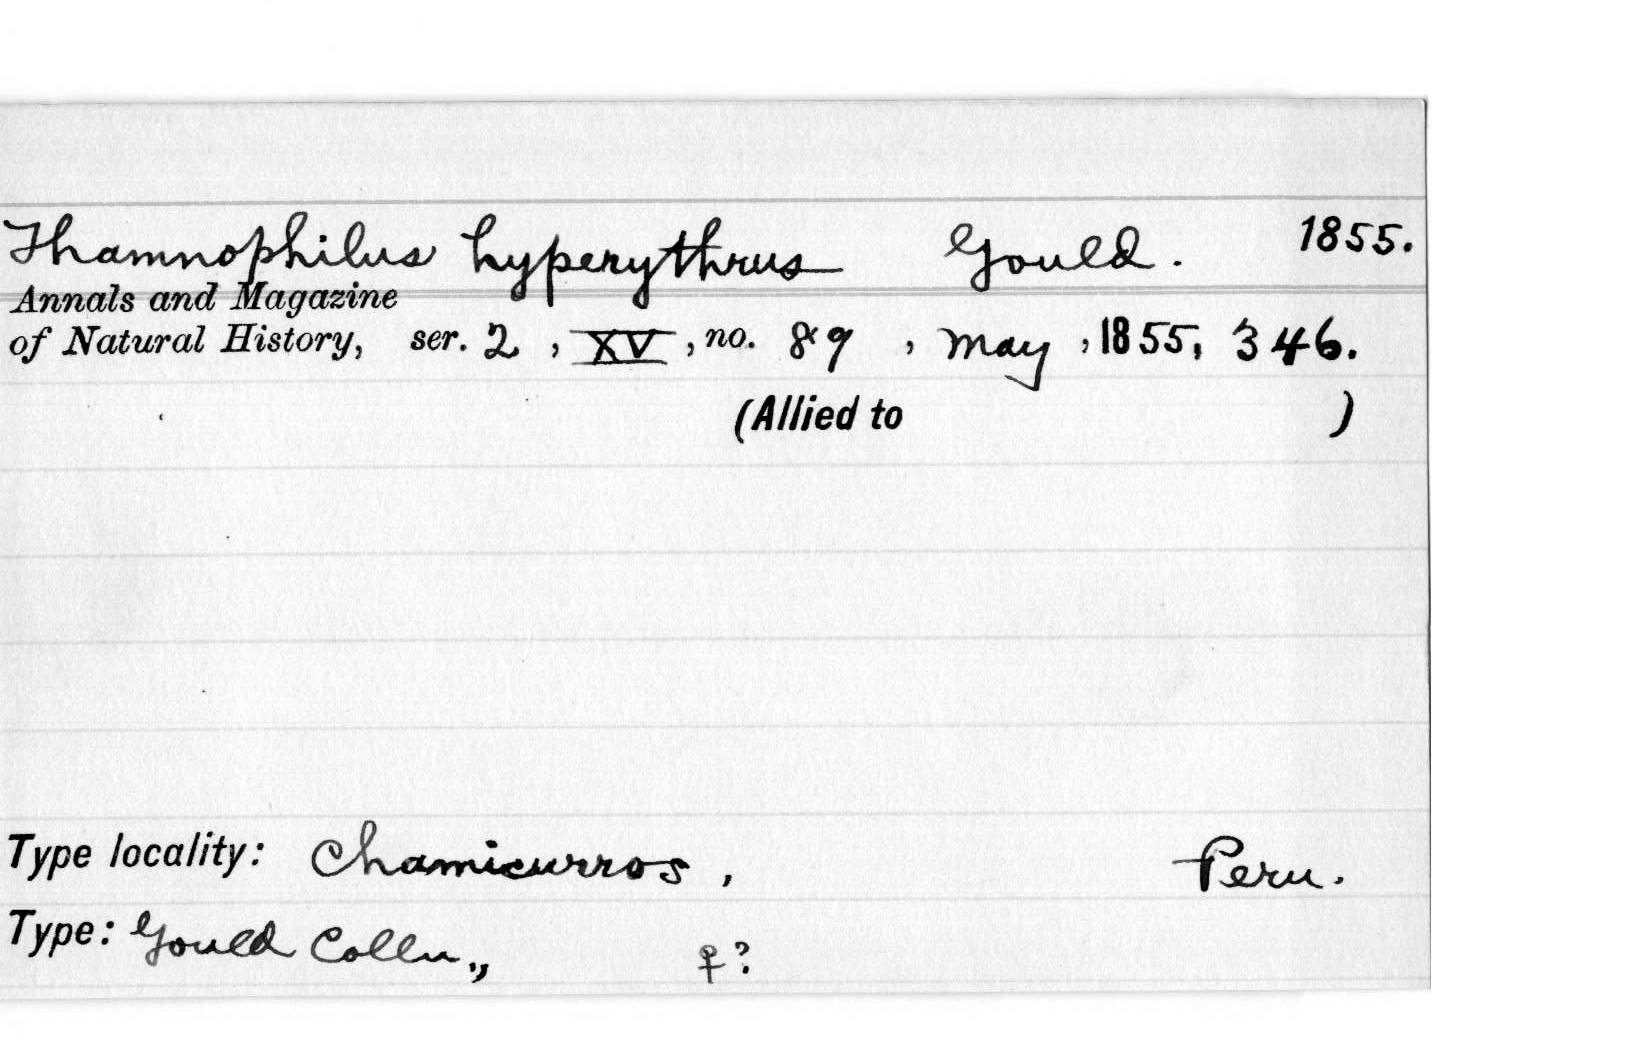 Thamnophilus hyperythrus Gould. 1855.
Annals and Magazine
of Natural History, ser. 2, XV, no. 89, May, 1855, 346.
(Allied to )
Type locality: Chamicurros, Peru.
Type: Gould Colln., ♀?